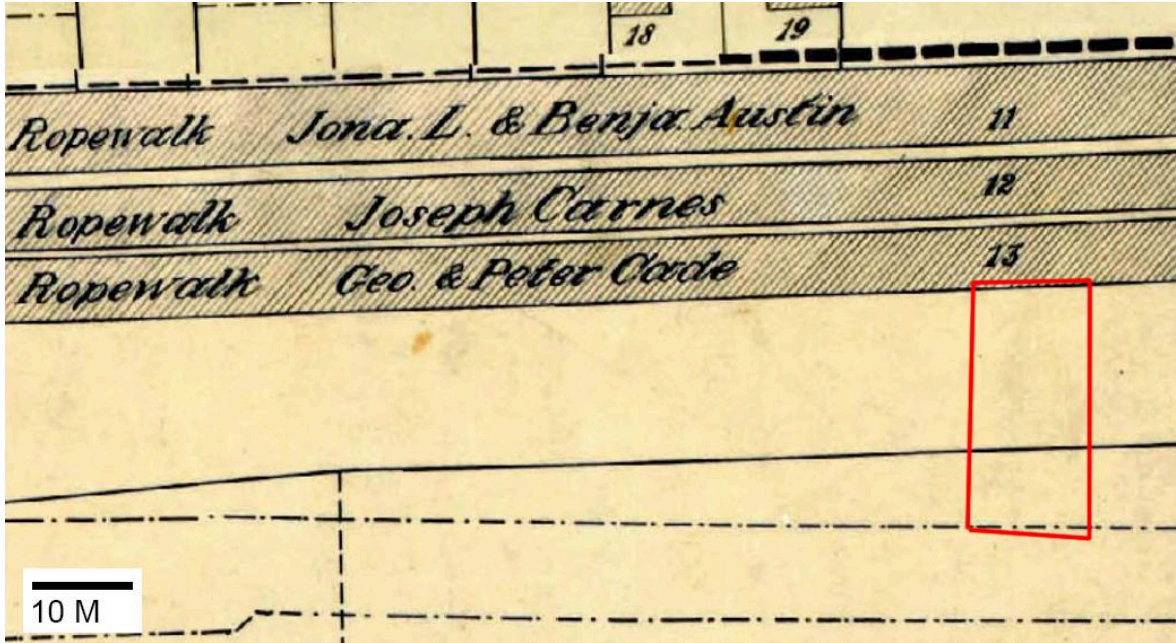 18 19
Ropewalk Jona. L. & Benja. Austin 11
Ropewalk Joseph Carnes 12
Ropewalk Geo. & Peter Cade 13
10 M